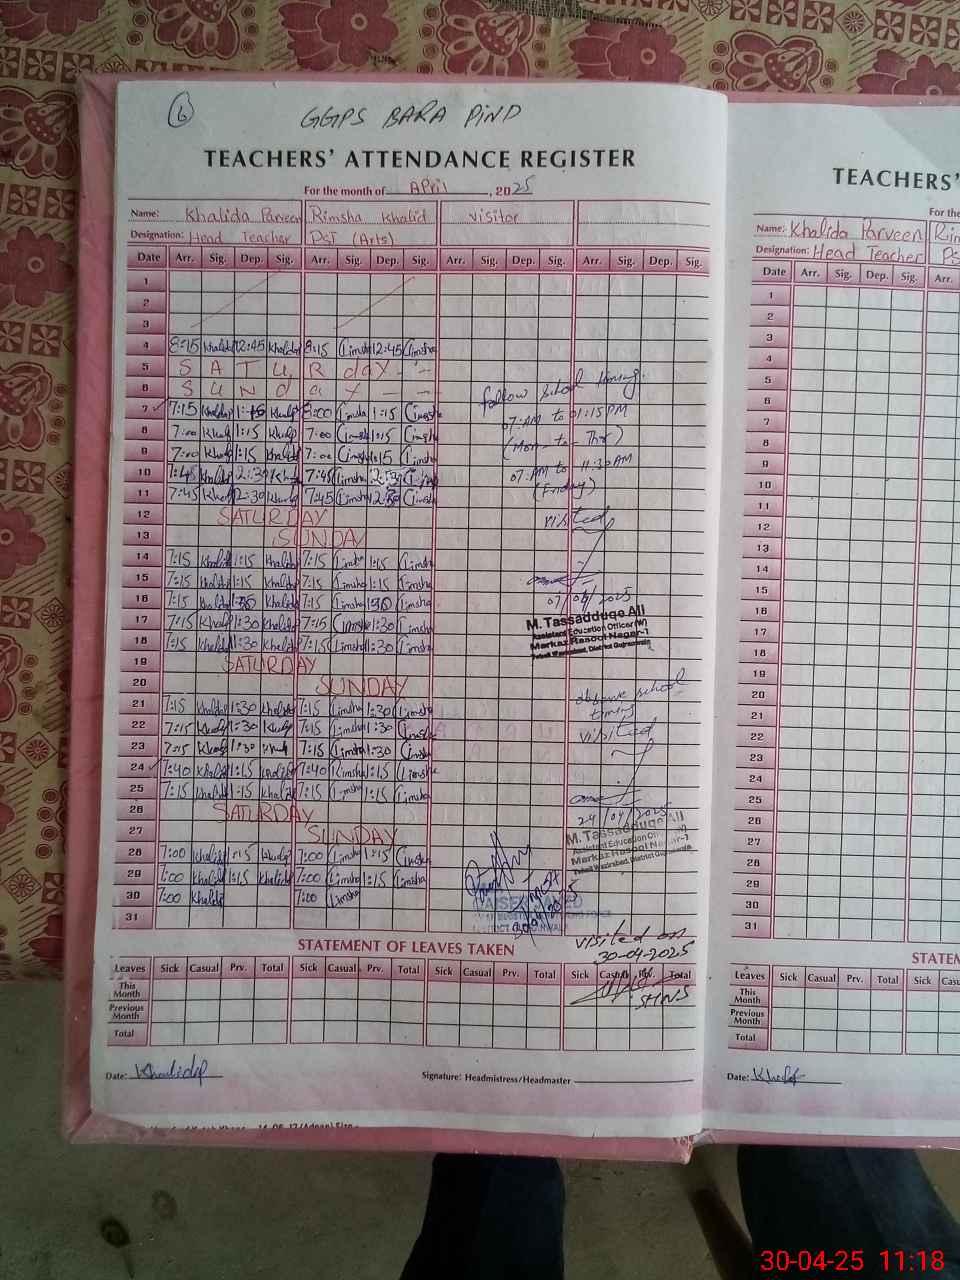 6
GGPS BARA PIND
TEACHERS' ATTENDANCE REGISTER
For the month of APril, 2025
Name: Khalida Parveen Rimsha Khalid visitor
Designation: Head Teacher PST (Arts)
Date Arr. Sig. Dep. Sig. Arr. Sig. Dep. Sig. Arr. Sig. Dep. Sig. Arr. Sig. Dep. Sig.
1
2
3
4 8:15 Khalida 12:45 Khalida 8:15 Rimsha 12:45 Rimsha
5 SATURday
6 SUNday
7 7:15 1:15 8:00 Rimsha 1:15 Rimsha
8 7:00 1:15 7:00 Rimsha 1:15 Rimsha
9 7:00 1:15 7:00 Rimsha 1:15 Rimsha
10 7:45 12:30 7:45 Rimsha Rimsha
11 7:45 12:30 7:45 Rimsha Rimsha
12 SATURDAY
13 SUNDAY
14 7:15 Khalida 1:15 Khalida 7:15 Rimsha 1:15 Rimsha
15 7:15 Khalida 1:15 Khalida 7:15 Rimsha 1:15 Rimsha
16 7:15 Khalida Khalida 7:15 Rimsha Rimsha
17 7:15 Khalida 1:30 Khalida 7:15 Rimsha 1:30 Rimsha
18 7:15 Khalida 11:30 Khalida 7:15 Rimsha 11:30 Rimsha
19 SATURDAY
20 SUNDAY
21 7:15 Khalida 1:30 Khalida 7:15 Rimsha 1:30 Rimsha
22 7:15 1:30 7:15 Rimsha 1:30 Rimsha
23 7:15 1:30 7:15 Rimsha 1:30 Rimsha
24 7:40 Khalida 1:15 Khalida 7:40 Rimsha 1:15 Rimsha
25 7:15 Khalida 1:15 Khalida 7:15 Rimsha 1:15 Rimsha
26 SATURDAY
27 SUNDAY
28 7:00 Khalida 1:15 7:00 Rimsha 1:15 Rimsha
29 7:00 Khalida 1:15 Khalida 7:00 Rimsha 1:15 Rimsha
30 7:00 Khalida 7:00 Rimsha
31
follow school timing.
07:AM to 01:15PM
(Mon - to - Thr)
07:AM to 11:30AM
(Friday)
visited
07/04/2025
M. Tassadduqe Ali
Assistant Education Officer (W)
Markaz Rasool Nagar-1
Tehsil Wazirabad, District Gujranwala
observe school
timing
visited
24/04/2025
M. Tassadduqe Ali
Assistant Education Officer (W)
Markaz Rasool Nagar-1
Tehsil Wazirabad, District Gujranwala
30/04/2025
visited on
30-04-2025
STATEMENT OF LEAVES TAKEN
Leaves Sick Casual Prv. Total Sick Casual Prv. Total Sick Casual Prv. Total Sick Casual Prv. Total
This Month
Previous Month
Total
Date: Khalida
Signature: Headmistress/Headmaster
TEACHERS'
For the
Name: Khalida Parveen Rim
Designation: Head Teacher PS
Date Arr. Sig. Dep. Sig. Arr.
1
2
3
4
5
6
7
8
9
10
11
12
13
14
15
16
17
18
19
20
21
22
23
24
25
26
27
28
29
30
31
STATEM
Leaves Sick Casual Prv. Total Sick Casu
This Month
Previous Month
Total
Date:
30-04-25 11:18